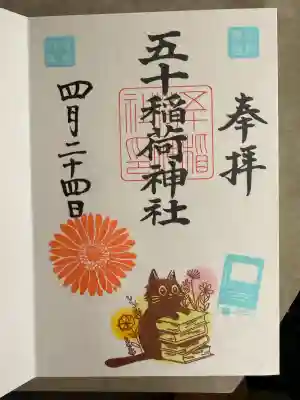 奉拝
五十稲荷神社
四月二十四日